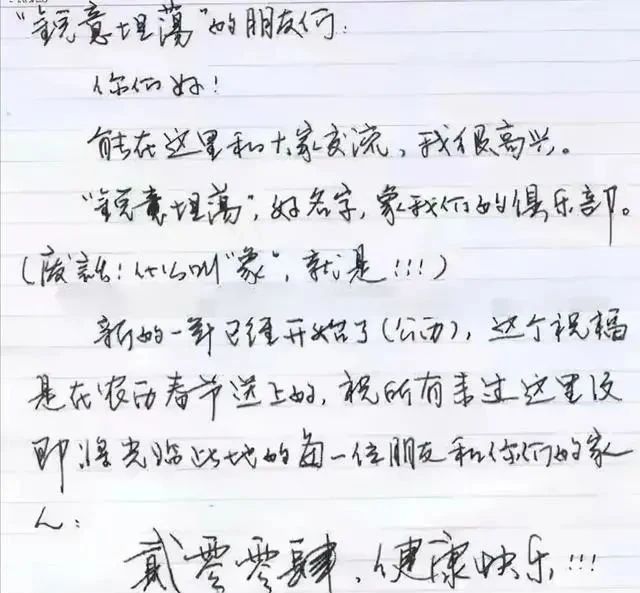 "锐意坦荡"的朋友们：
你们好！
能在这里和大家交流，我很高兴。
"锐意坦荡"，好名字，象我们的俱乐部。
（废话！什么叫"象"，就是！！！）
新的一年已经开始了（公历），这个祝福
是在农历春节送上的，祝所有来过这里及
即将光临此地的每一位朋友和你们的家
人：
贰零零肆，健康快乐！！！